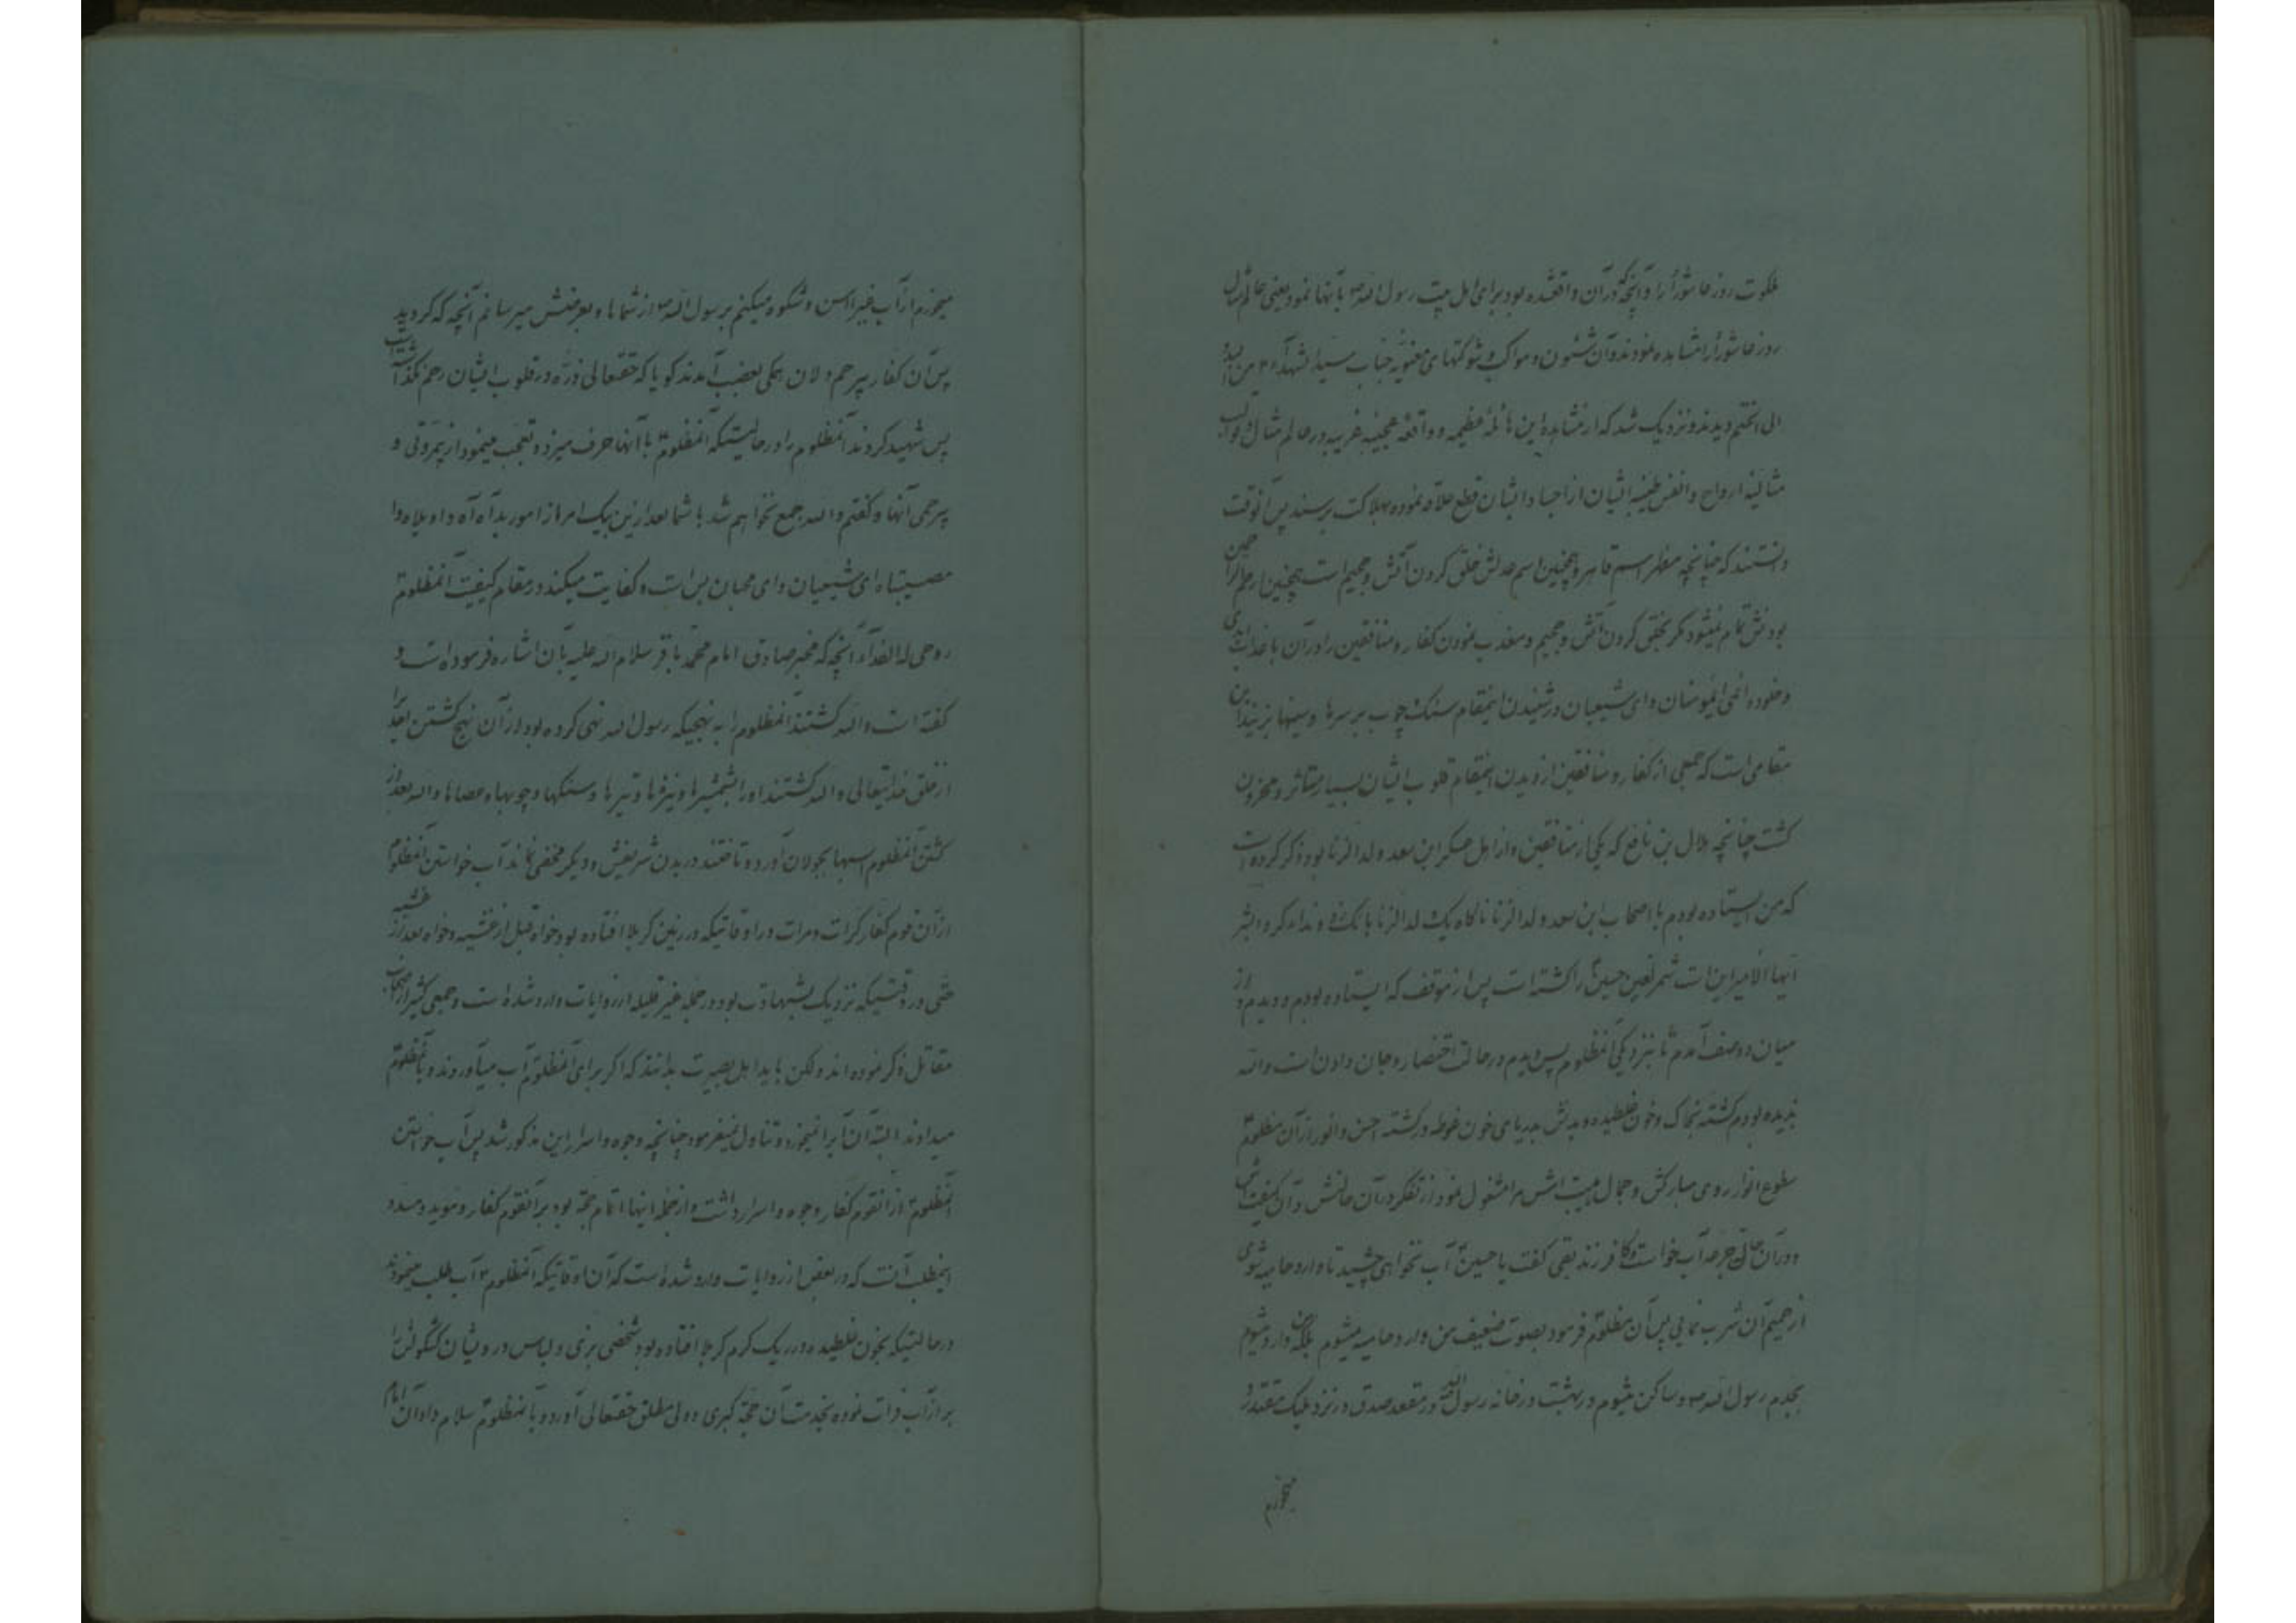 ملکوت روز عاشورا را و آنچه که در آن واقعشده بود برای اهل بیت رسول الله ص بآنها نمود یعنی عالم مثال
روز عاشورا را مشاهده نمودند و آن شئون و مواکب و شوکتهای معنویه جناب سید الشهداء ع من البدو
الی الختم دیدند و نزدیک شد که از مشاهدهٔ این هائلهٔ عظیمه و واقعهٔ عجیبه غریبه در عالم مثال و قوالب
مثالیه ارواح و انفس طیبه ایشان از اجساد ایشان قطع علاقه نموده بهلاکت برسند پس آنوقت
دانستند که چنانچه مظهر اسم قاهر و همچنین اسم عدلش خلق کردن آتش و جحیم است همچنین ارحم الراحمین
بودنش تمام نمیشود مگر بخلق کردن آتش و جحیم و معذب نمودن کفار و منافقین را در آن با عذاب ابدی
و خلود دائمی ایمؤمنان و ای شیعیان در شنیدن اینمقام سنگ و چوب بر سرها و سینها بزنید این
مقامی است که جمعی از کفار و منافقین از دیدن اینمقام قلوب ایشان بسیار متاثر و محزون
گشت چنانچه هلال بن نافع که یکی از منافقین و از اهل عسکر ابن سعد ولد الزنا بود ذکر کرده است
که من ایستاده بودم با اصحاب ابن سعد ولد الزنا ناگاه یک ولد الزنا بانگ زد و نداء کرد ابشر
ایها الامیر اینست شمر لعین حسین را کشته است پس از موقف که ایستاده بودم دویدم و از
میان دو صف آمدم تا بنزدیکی آنمظلوم پس دیدم در حالت احتضار و جان دادن است والله
ندیده بودم کشته بخاک و خون غلطیده و بدنش بدریای خون غوطه ور گشته احسن و انور از آن مظلوم
سطوع انوار روی مبارکش و جمال هیبت اش مرا مشغول نمود از تفکر در آن حالتش و آن کیفیت اش
و در آن حالت جرعه آب خواست و کافر زندیقی گفت یا حسین آب نخواهی چشید تا وارد حامیه شوی
از حمیم آن شرب نمائی پس آن مظلوم فرمود بصوت ضعیف من وارد حامیه میشوم بلکه من وارد میشوم
بجدم رسول الله ص و ساکن میشوم در بهشت در خانه رسول الله و در مقعد صدق در نزد ملیک مقتدر و
میخورم
میخورم از آب غیر آسن و شکوه میکنم بر رسول الله ص از شماها و بعرضش میرسانم آنچه که کردید
پس آن کفار بیرحم دلان همگی بغضب آمدند گویا که حقتعالی ذره در قلوب ایشان رحم نگذاشته است
پس شهید کردند آنمظلوم را در حالیتیکه آنمظلوم با آنها حرف میزد و تعجب مینمود از بیمروتی و
بیرحمی آنها و گفتم والله جمع نخواهم شد با شما بعد ازین بیک امر از امور بدا آه آه واویلاه وا
مصیبتاه ای شیعیان و ای محبان بس است و کفایت میکند در مقام کیفیت آنمظلوم
روحی له الفداء آنچه که مخبر صادق امام محمد باقر سلام الله علیه بآن اشاره فرموده است و
گفته است والله کشتند آنمظلوم را به نهجیکه رسول الله نهی کرده بود از آن نهج کشتن احدیرا
از خلق خدایتعالی والله کشتند او را بشمشیرها و نیزها و تیرها و سنگها و چوبها و عصاها والله بعد از
کشتن آنمظلوم اسبها بجولان آورد و تاختند در بدن شریفش و دیگر مخفی نماند آب خواستن آنمظلوم
از آن قوم کفار کرات و مرات در اوقاتیکه در زمین کربلا افتاده بود خواه قبل از غشیه و خواه بعد از غشیه
حتی در وقتیکه نزدیک بشهادت بود در جمله غیر قلیله از روایات وارد شده است و جمعی کثیر از اصحاب
مقاتل ذکر نموده اند و لکن باید اهل بصیرت بدانند که اگر برای آنمظلوم آب میآوردند و بآنمظلوم
میدادند البته آن آب را نمیخورد و تناول نمیفرمود چنانچه وجوه و اسرار این مذکور شد پس آب خواستن
آنمظلوم از آنقوم کفار وجوه و اسرار داشت و از جمله اینها اتمام حجة بود بر آنقوم کفار و موید و مسدد
اینمطلب آنست که در بعض از روایات وارد شده است که آن اوقاتیکه آنمظلوم آب طلب مینمود
در حالتیکه بخون غلطیده در ریگ گرم کربلا افتاده بود شخصی بزی و لباس درویشان کشکولش را
پر از آب فرات نموده بخدمت آن حجة کبری و ولی مطلق حقتعالی آورد و بآنمظلوم سلام داد آن امام